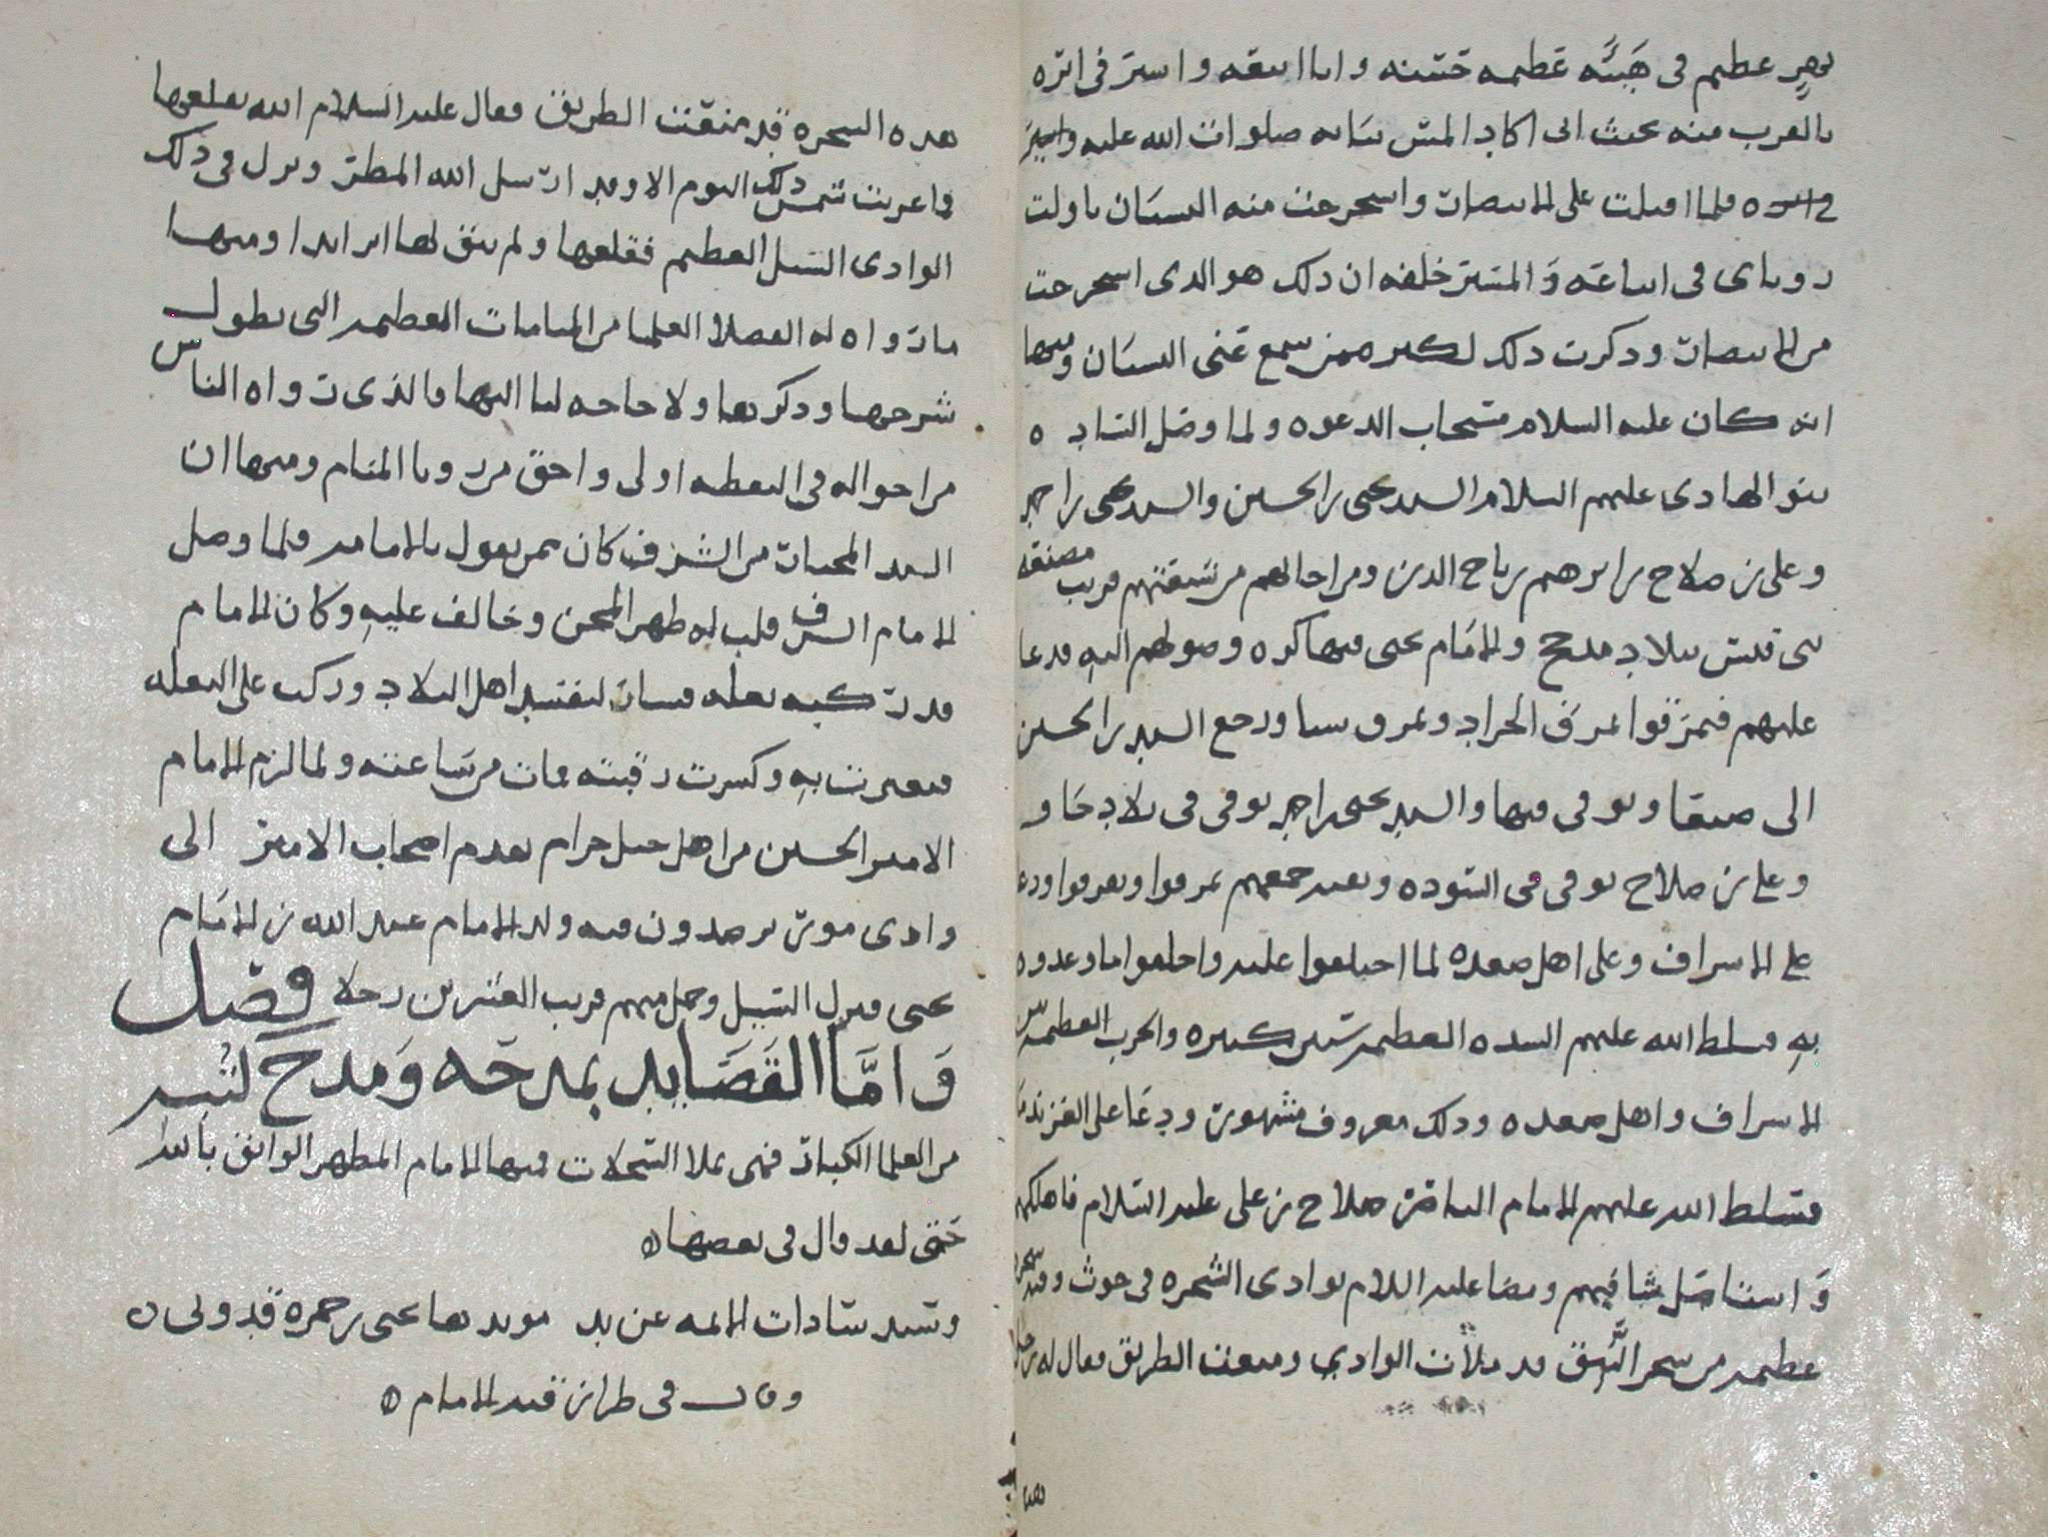 عظيم في هيئة عظيمة حسنة وانا اتبعه واسير في اثره
بالقرب منه بحيث اني اكاد المس ثيابه صلوات الله عليه واسير
فلما اقبلت على الانتصار واستخرجت منه البستان تاولت
روياي في اتباعه والمسير خلفه ان ذلك هو الذي استخرجت
من الانتصار وذكرت ذلك لكثير ممن سمع عني البستان ومنها
انه كان عليه السلام مستجاب الدعوة ولما وصل السادة
بنو الهادي عليهم السلام السيد يحيى بن الحسين والسيد يحيى بن احمد
وعلي بن صلاح بن ابرهيم بن تاج الدين ومن اجابهم من شيعتهم قريب مصنعة
بني قيس ببلاد مذحج والامام يحيى فيها كره وصولهم اليه فدعا
عليهم فتمزقوا تمزق الجراد وتمزق سبا ورجع السيد بن الحسين
الى صنعا وتوفي فيها والسيد يحيى بن احمد توفي في بلاد
وعلي بن صلاح توفي في السودة وبعد جمعهم تمزقوا وتفرقوا ودعا
على الاشراف وعلى اهل صعدة لما اختلفوا عليه واخلفوا ما وعدوه
به فسلط الله عليهم الشدة العظيمة سنين كثيرة والحرب العظيمة بين
الاشراف واهل صعدة وذلك معروف مشهور ودعا على الغز
فسلط الله عليهم الامام الناصر صلاح بن علي عليه السلام فاهلكهم
واستاصل شافتهم ومضا عليه السلام بوادي الشجرة في حوث وفيه شجرة
عظيمة من شجر قد ملات الوادي ومنعت الطريق فقال له رجل
هذه الشجرة قد ضيقت الطريق فقال عليه السلام الله يقلعها
فما غربت شمس ذلك اليوم الا وقد ارسل الله المطر ونزل في ذلك
الوادي السيل العظيم فقلعها ولم يبق لها اثر ابدا ومنها
ما رواه له الفضلا العلما من المنامات العظيمة التي يطول
شرحها وذكرها ولا حاجة لنا اليها فالذي رواه الناس
من احواله في اليقظة اولى واحق من رويا المنام ومنها ان
السيد من الشرف كان ممن يقول بالامامة فلما وصل
الامام الشرف قلب له ظهر المجن وخالف عليه وكان الامام
قد ركبه بغلة فسار ليفسد اهل البلاد وركب على البغلة
فتعثرت به وكسرت رقبته فمات من ساعته ولما لزم الامام
الامير الحسين من اهل جبل حرام تقدم اصحاب الامير الى
وادي مور يرصدون فيه ولد الامام عبد الله بن الامام
يحيى فنزل السيل وحمل منهم قريب العشرين رجلا فصل
واما القصايد بمدحه ومدح كتبه
من العلما الكبار فهي تملا السجلات فيها الامام المطهر الواثق بالله
حتى لقد قال في بعضها ه
وقال في طراز قبة الامام ه